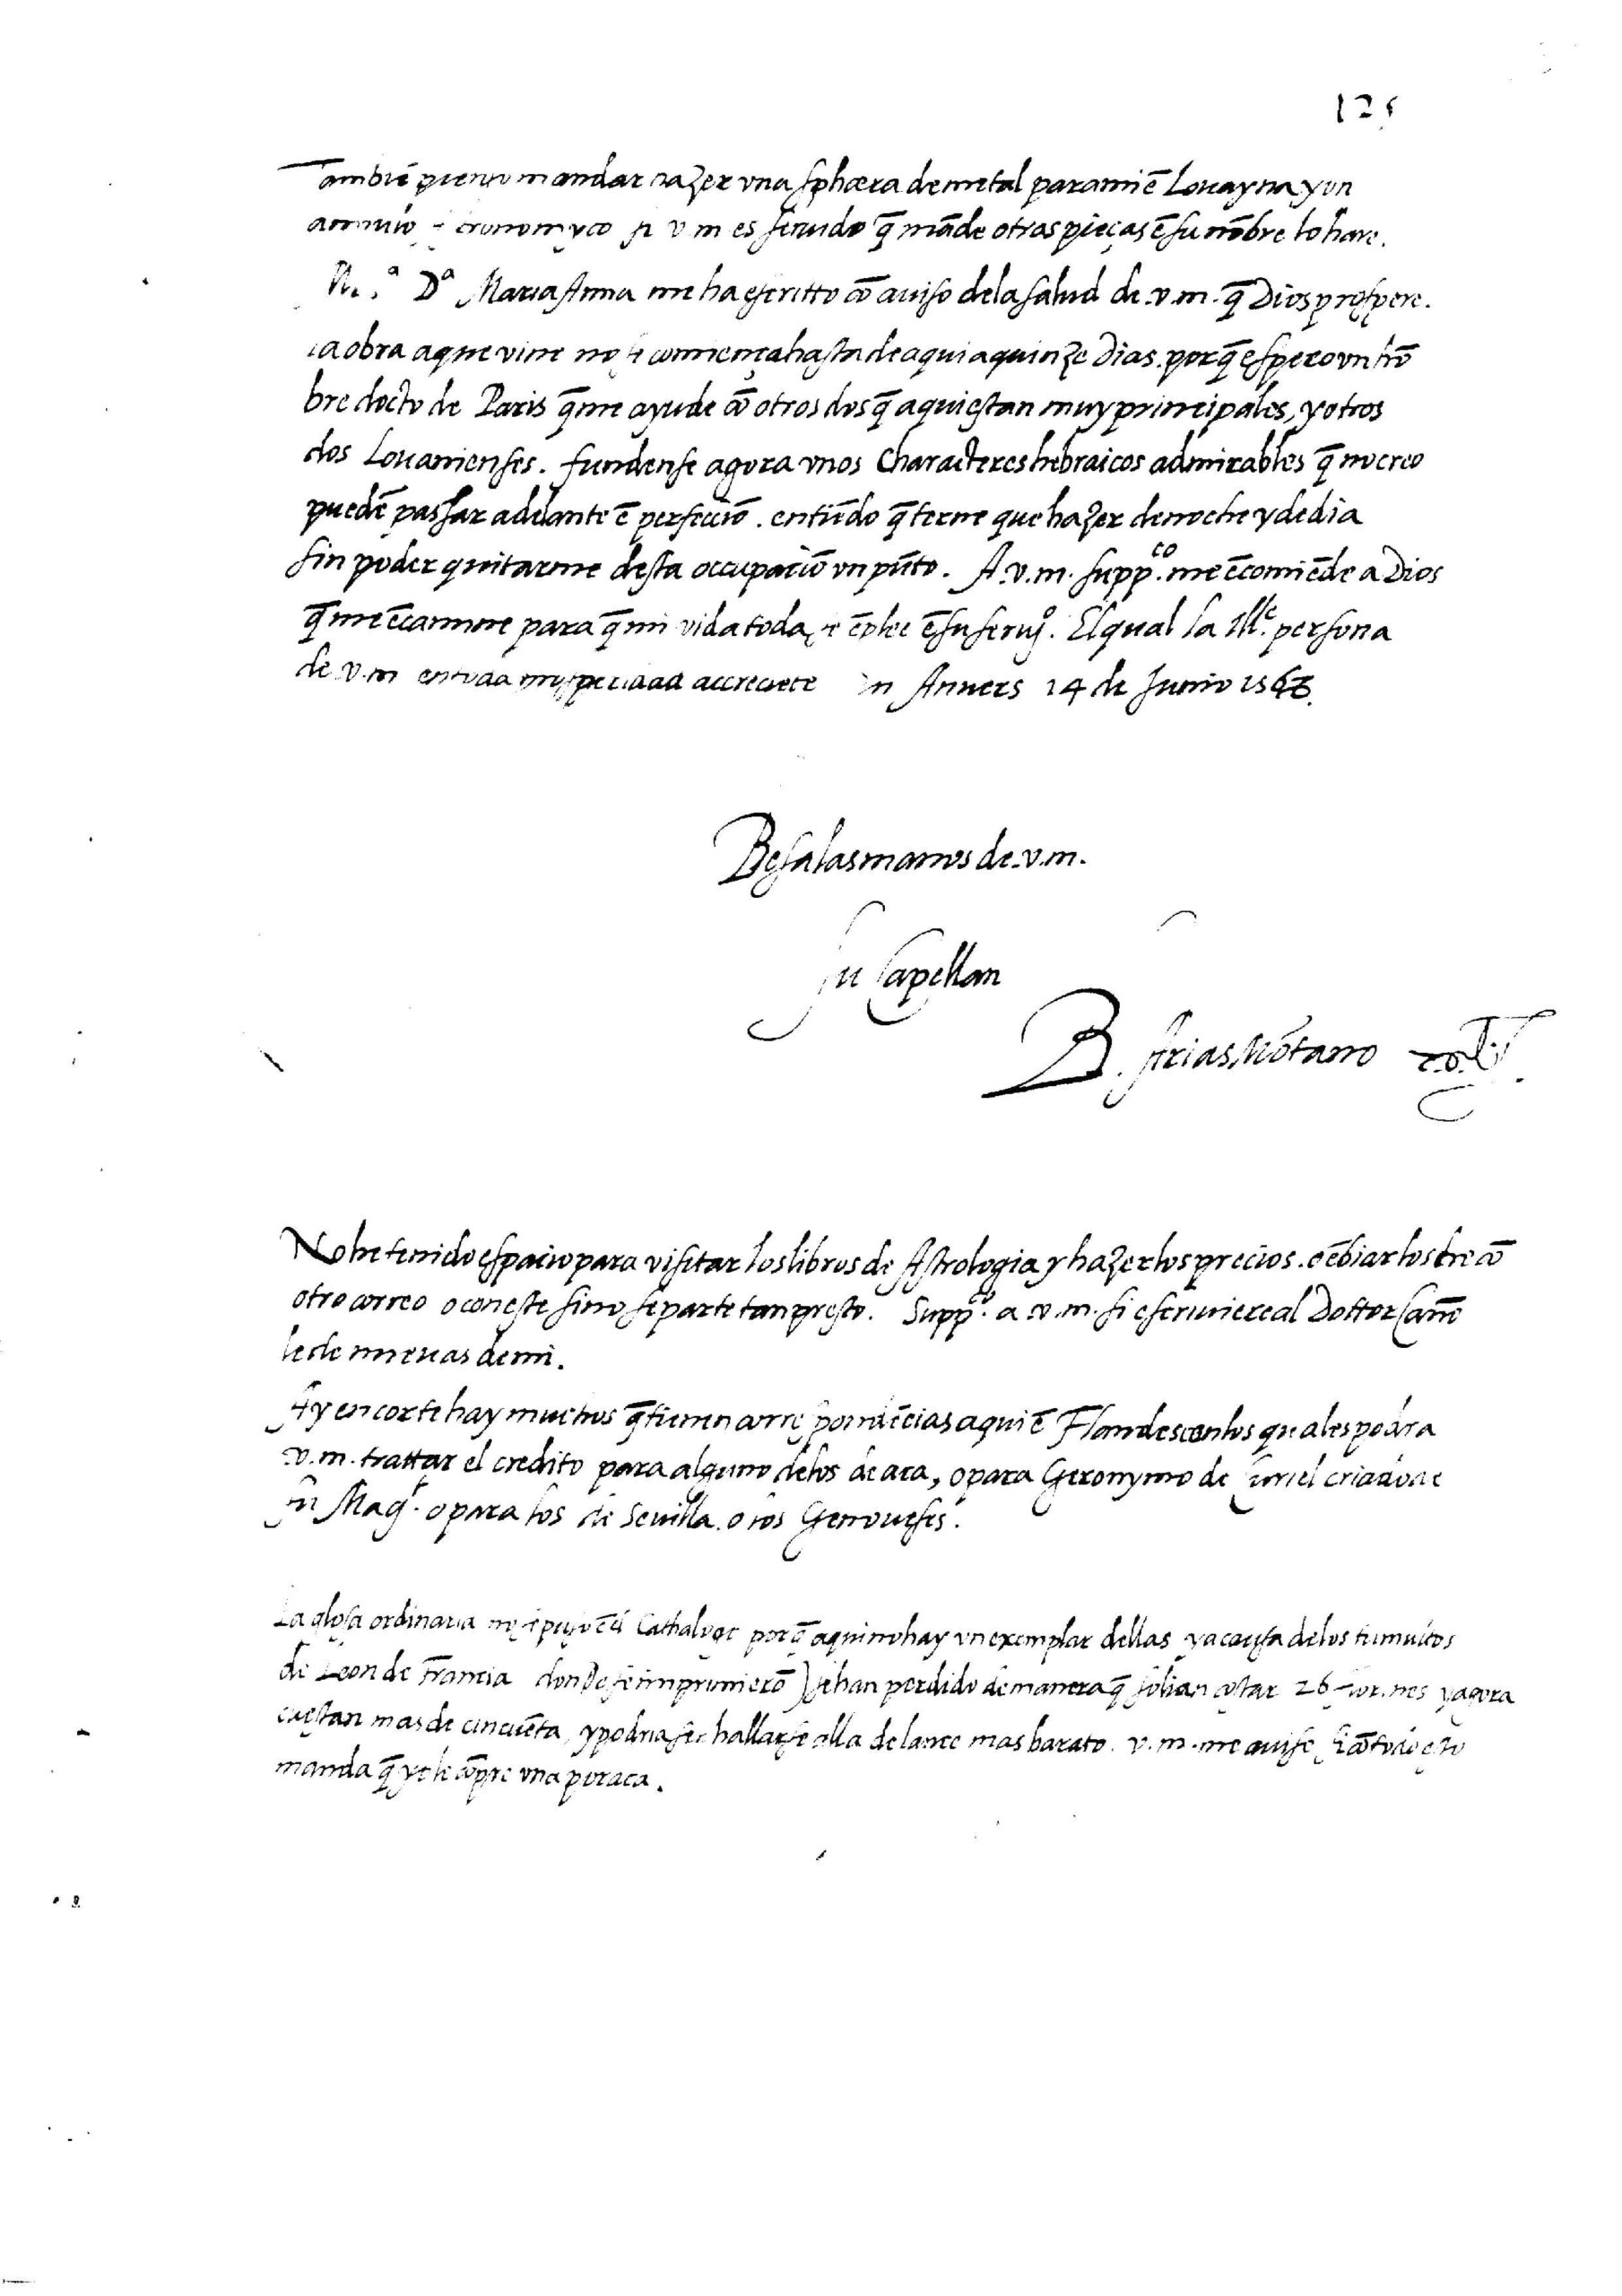 125
Tambiẽ pienso mandar hazer vna sphæra de metal para mi ẽ Louayna y vn
annulo astronomyco si v m es seruido q̃ mãde otras pieças ẽ su nõbre lo hare.
Mi.ª Dª Maria Anna me ha escritto cõ auiso de la salud de .v.m. q̃ Dios prospere.
la obra a que vine no se comiença hasta de aqui a quinze dias. porq̃ espero vn hõ
bre docto de Paris q̃ me ayude cõ otros dos q̃ aqui estan muy principales, y otros
dos Louanienses. fundense agora vnos Characteres hebraicos admirables q̃ no creo
puedẽ passar adelante ẽ perfeciõ. entiẽdo q̃ terne que hazer de noche y de dia
sin poder quitarme desta occupaciõ vn pũto. A .v.m. supp.co me ẽcomiẽde a Dios
q̃ me ẽcamine para q̃ mi vida toda se ẽplee ẽ su seruj.º El qual la Ille. persona
de .v.m en toda prosperidad accreciete En Anuers 14 de Junio 1568.
Besa las manos de .v.m.
su Capellan
B. Arias Mõtano
No he tenido espacio para visitar los libros de Astrologia y hazer los precios. o ẽbiar los he cõ
otro correo o con este sino se parte tan presto. Supp.co a .v.m. si escriuiere al Dottor Canõ
le de nueuas de mi.
Ay en corte hay muchos q̃ tienen correspondẽcias aqui ẽ Flandes con los quales podra
.v.m. trattar el credito para alguno de los de aca, o para Geronymo de Curiel criado de
su Magt. o para los de Seuilla. o los Genoueses.
La glosa ordinaria no se puso ẽ el Cathalogo porq̃ aqui no hay vn exemplar dellas y a causa de los tumultos
de Leon de Francia donde se imprimierõ) se han perdido de manera q̃ solian costar 26 florines y agora
cuestan mas de cincuẽta, y podria ser hallarse alla de lance mas barato. v.m. me auise si cõ todo esto
manda q̃ yo le cõpre vna por aca.